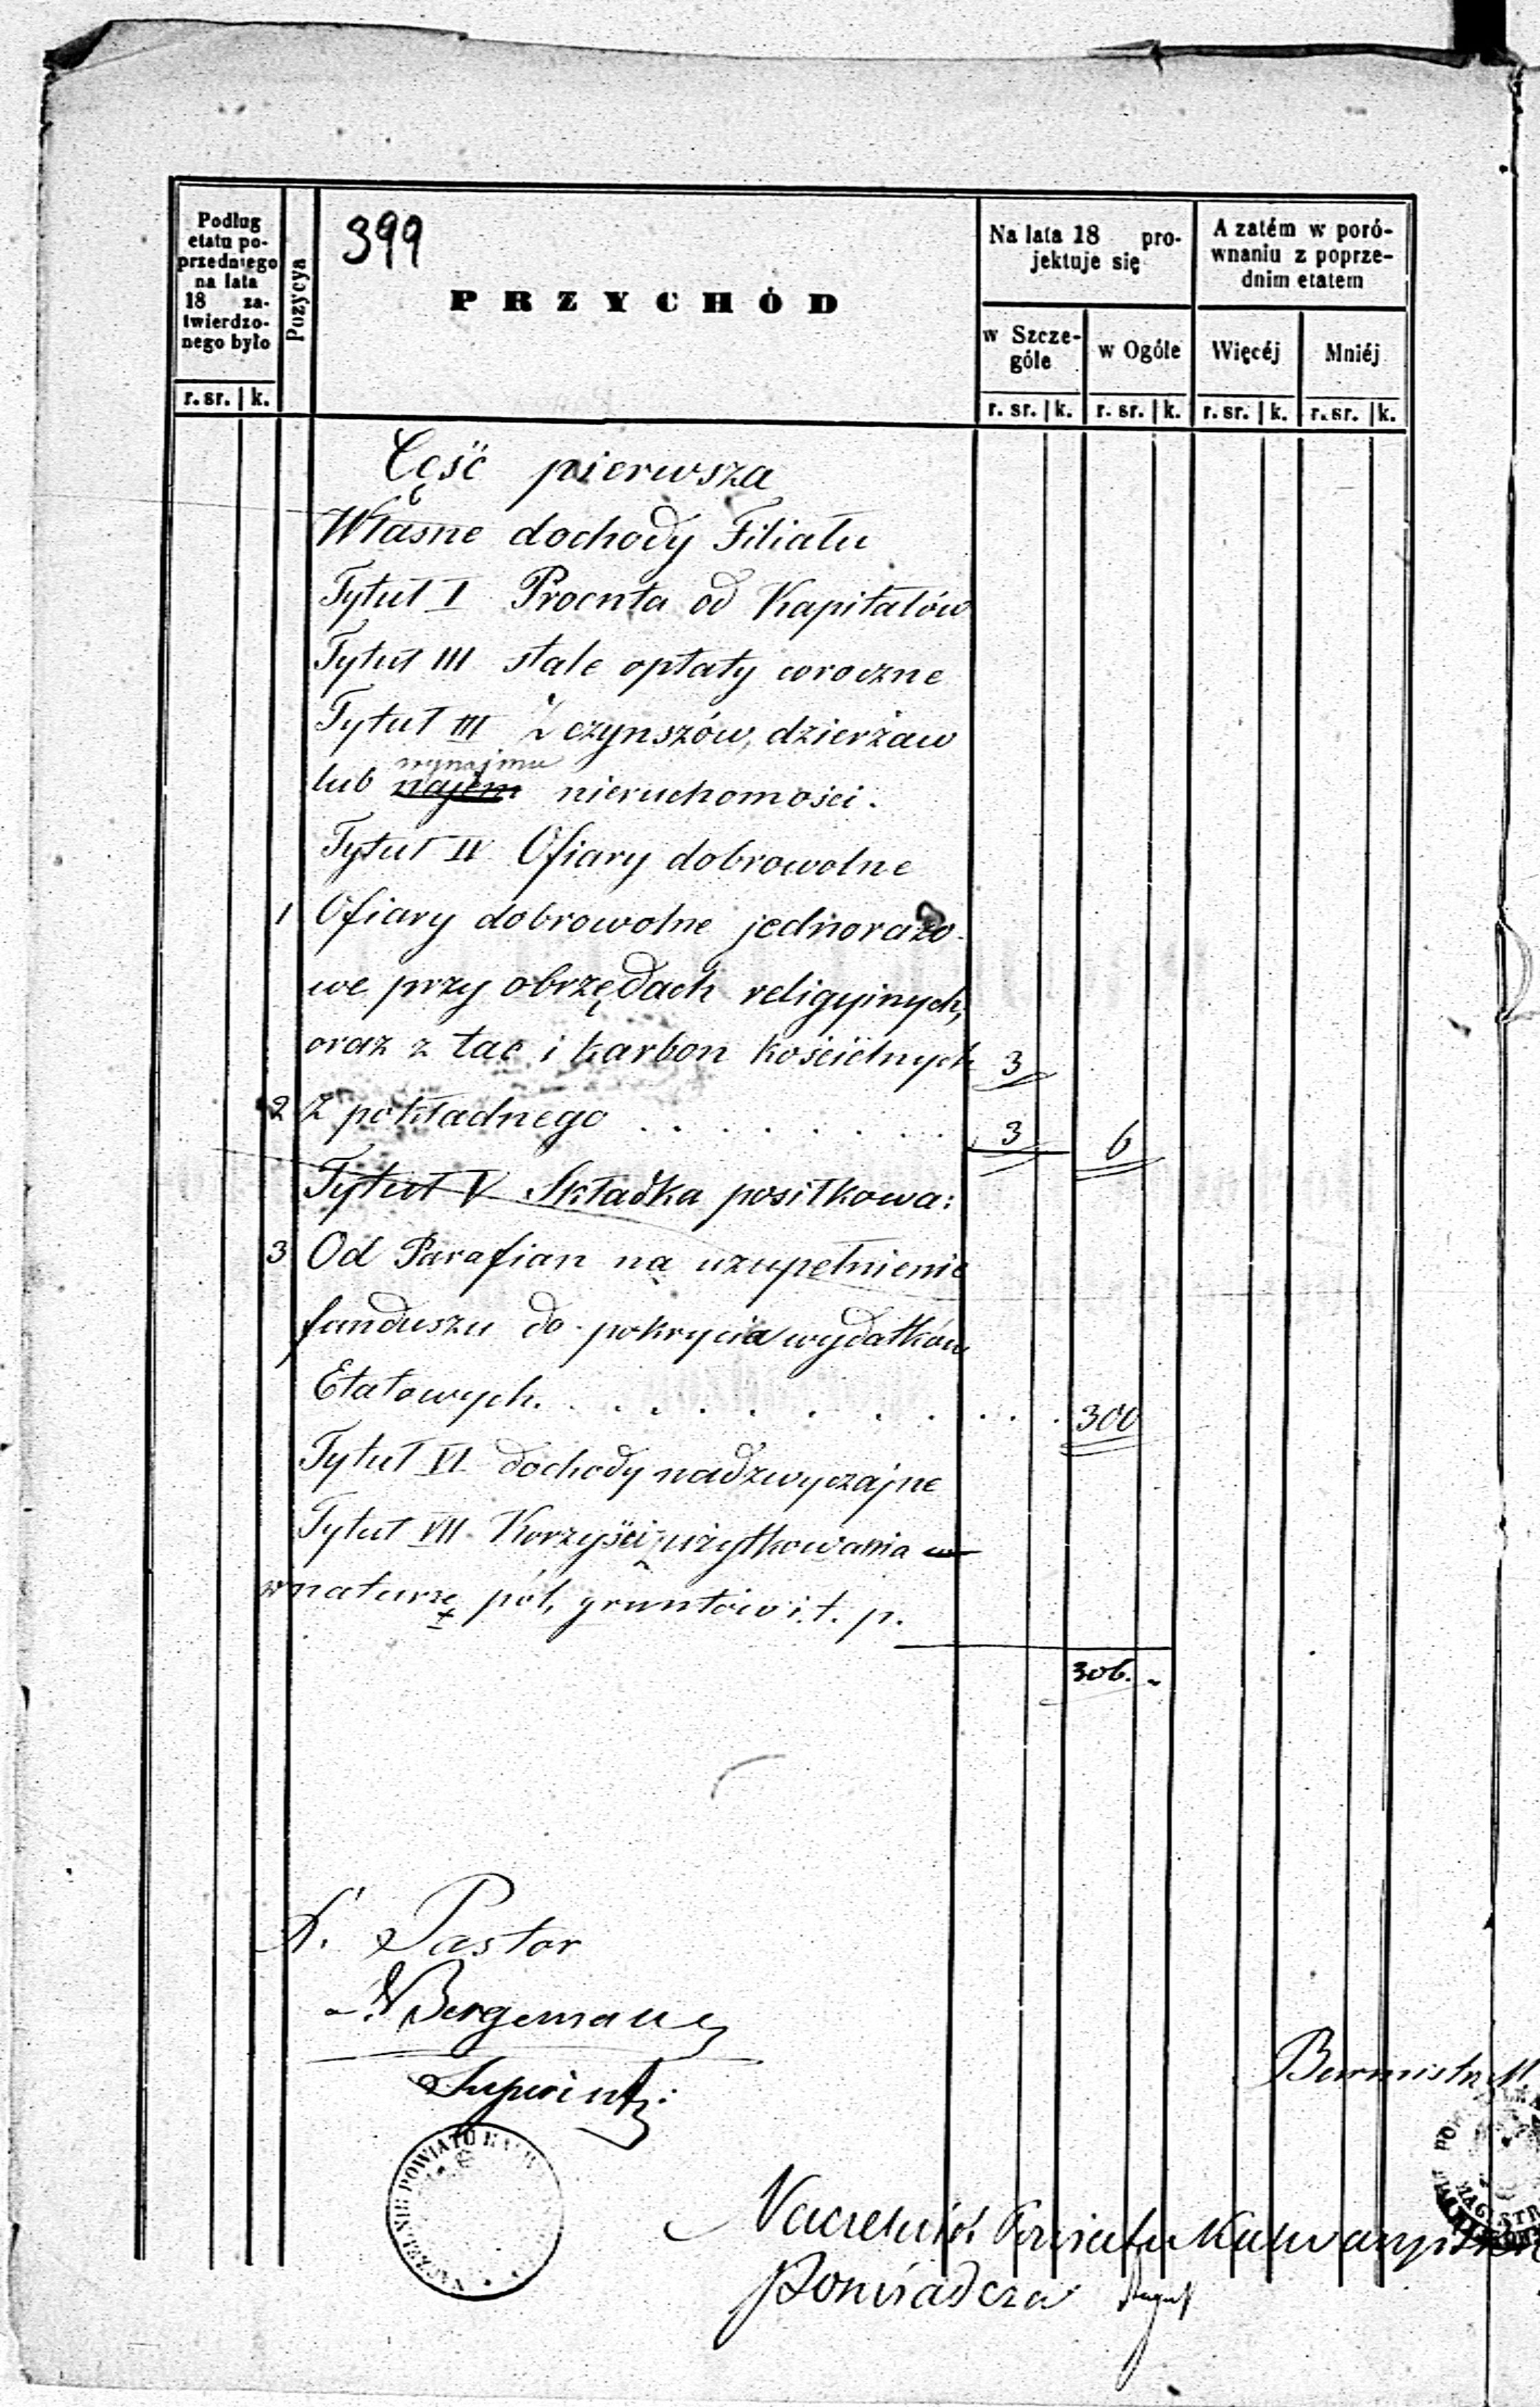 399
Podług
etatu po-
przedniego
na lata
18 za-
twierdzo-
nego było
r. sr. k.
Pozycya
PRZYCHÓD
Na lata 18 pro-
jektuje się
w Szcze-
góle
r. sr. k.
w Ogóle
r. sr. k.
A zatém w poró-
wnaniu z poprze-
dnim etatem
Więcéj
r. sr. k.
Mniéj
r. sr. k.
Część pierwsza
Własne dochody Filiału
Tytuł I Procnta od Kapitałów
Tytuł III stałe opłaty coroczne
Tytuł III Z czynszów, dzierżaw
wynajmu
lub najem nieruchomości.
Tytuł IV Ofiary dobrowolne
1 Ofiary dobrowolne jednorazo-
we przy obrzędach religyinych,
oraz z tac i karbon kościelnych 3
2 Z pokładnego . . . . . . . . 3 6
Tytuł V Składka posiłkowa:
3 Od Parafian na uzupełnienie
funduszu do pokrycia wydatków
Etatowych. . . . . . . . . . . 300
Tytuł VI dochody nadzwyczajne
Tytuł VII Korzyści z użytkowania
w naturze pól, gruntów i. t. p.
306. -
Pastor
Bergemann
Superint:
Burmistrz M.
NACZELNIK POWIATU
MAGISTR
Naczelnik Powiatu Kalwaryjski
Poświadcza